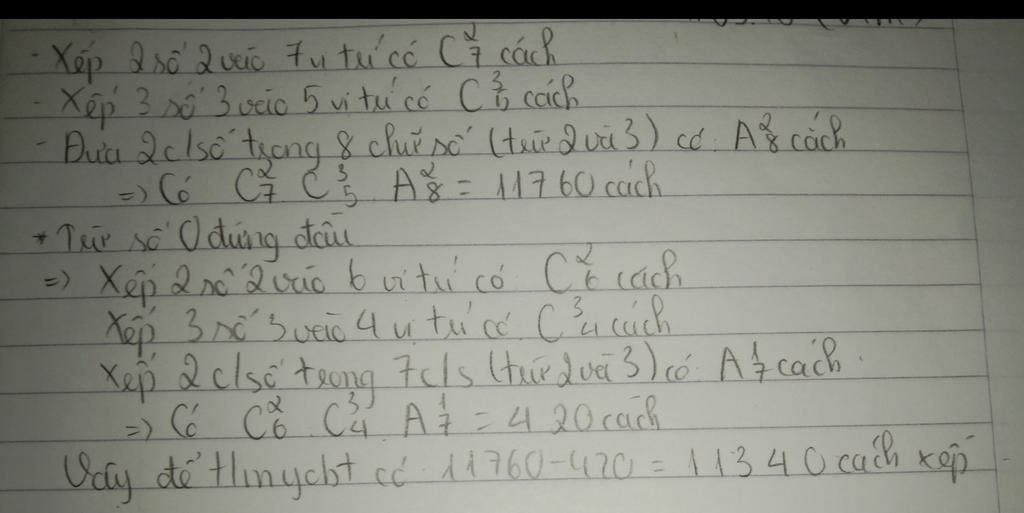 - Xếp 2 số 2 vào 7 vị trí có C²₇ cách
- Xếp 3 số 3 vào 5 vị trí có C³₅ cách
- Đưa 2 c/số trong 8 chữ số (trừ 2 và 3) có: A²₈ cách
=> Có C²₇ C³₅ A²₈ = 11760 cách
* Trừ số 0 đứng đầu
=> Xếp 2 số 2 vào 6 vị trí có C²₆ cách
Xếp 3 số 3 vào 4 vị trí có C³₄ cách
Xếp 2 c/số trong 7 c/s (trừ 2 và 3) có A¹₇ cách.
=> Có C²₆ . C³₄ . A¹₇ = 420 cách
Vậy để tmycbt có 11760-420 = 11340 cách xếp